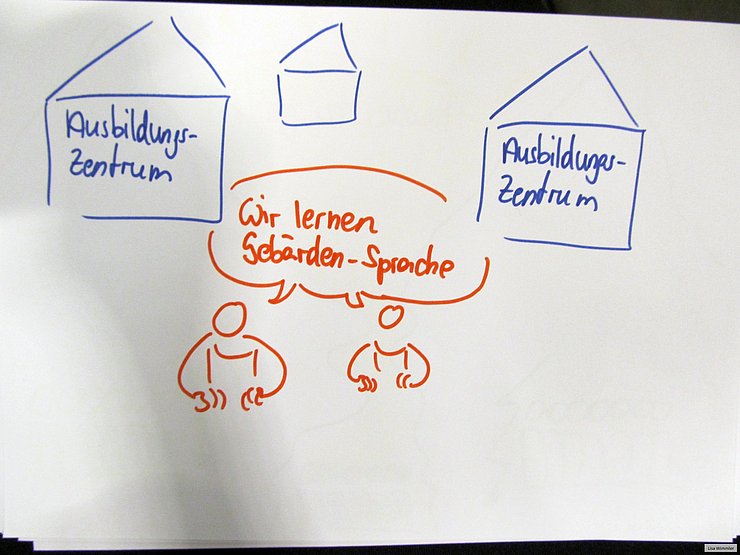 Ausbildungs-
Zentrum
Ausbildungs-
Zentrum
Wir lernen
Gebärden-Sprache
Lisa Wimmler